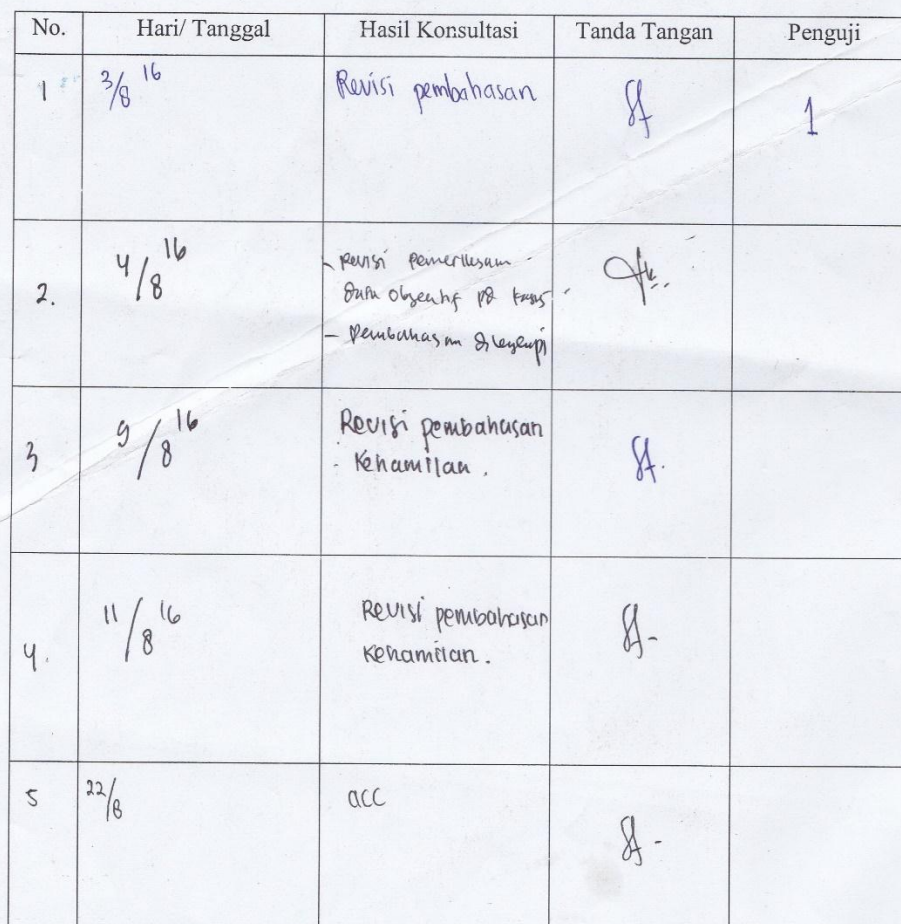 No. Hari/ Tanggal Hasil Konsultasi Tanda Tangan Penguji
1 3/8 16 Revisi pembahasan 1
2. 4/8 16 - Revisi pemeriksaan
data objektif pd kasus
- Pembahasan dilengkapi
3 9/8 16 Revisi pembahasan
kehamilan.
4. 11/8 16 Revisi pembahasan
kehamilan.
5 22/8 acc